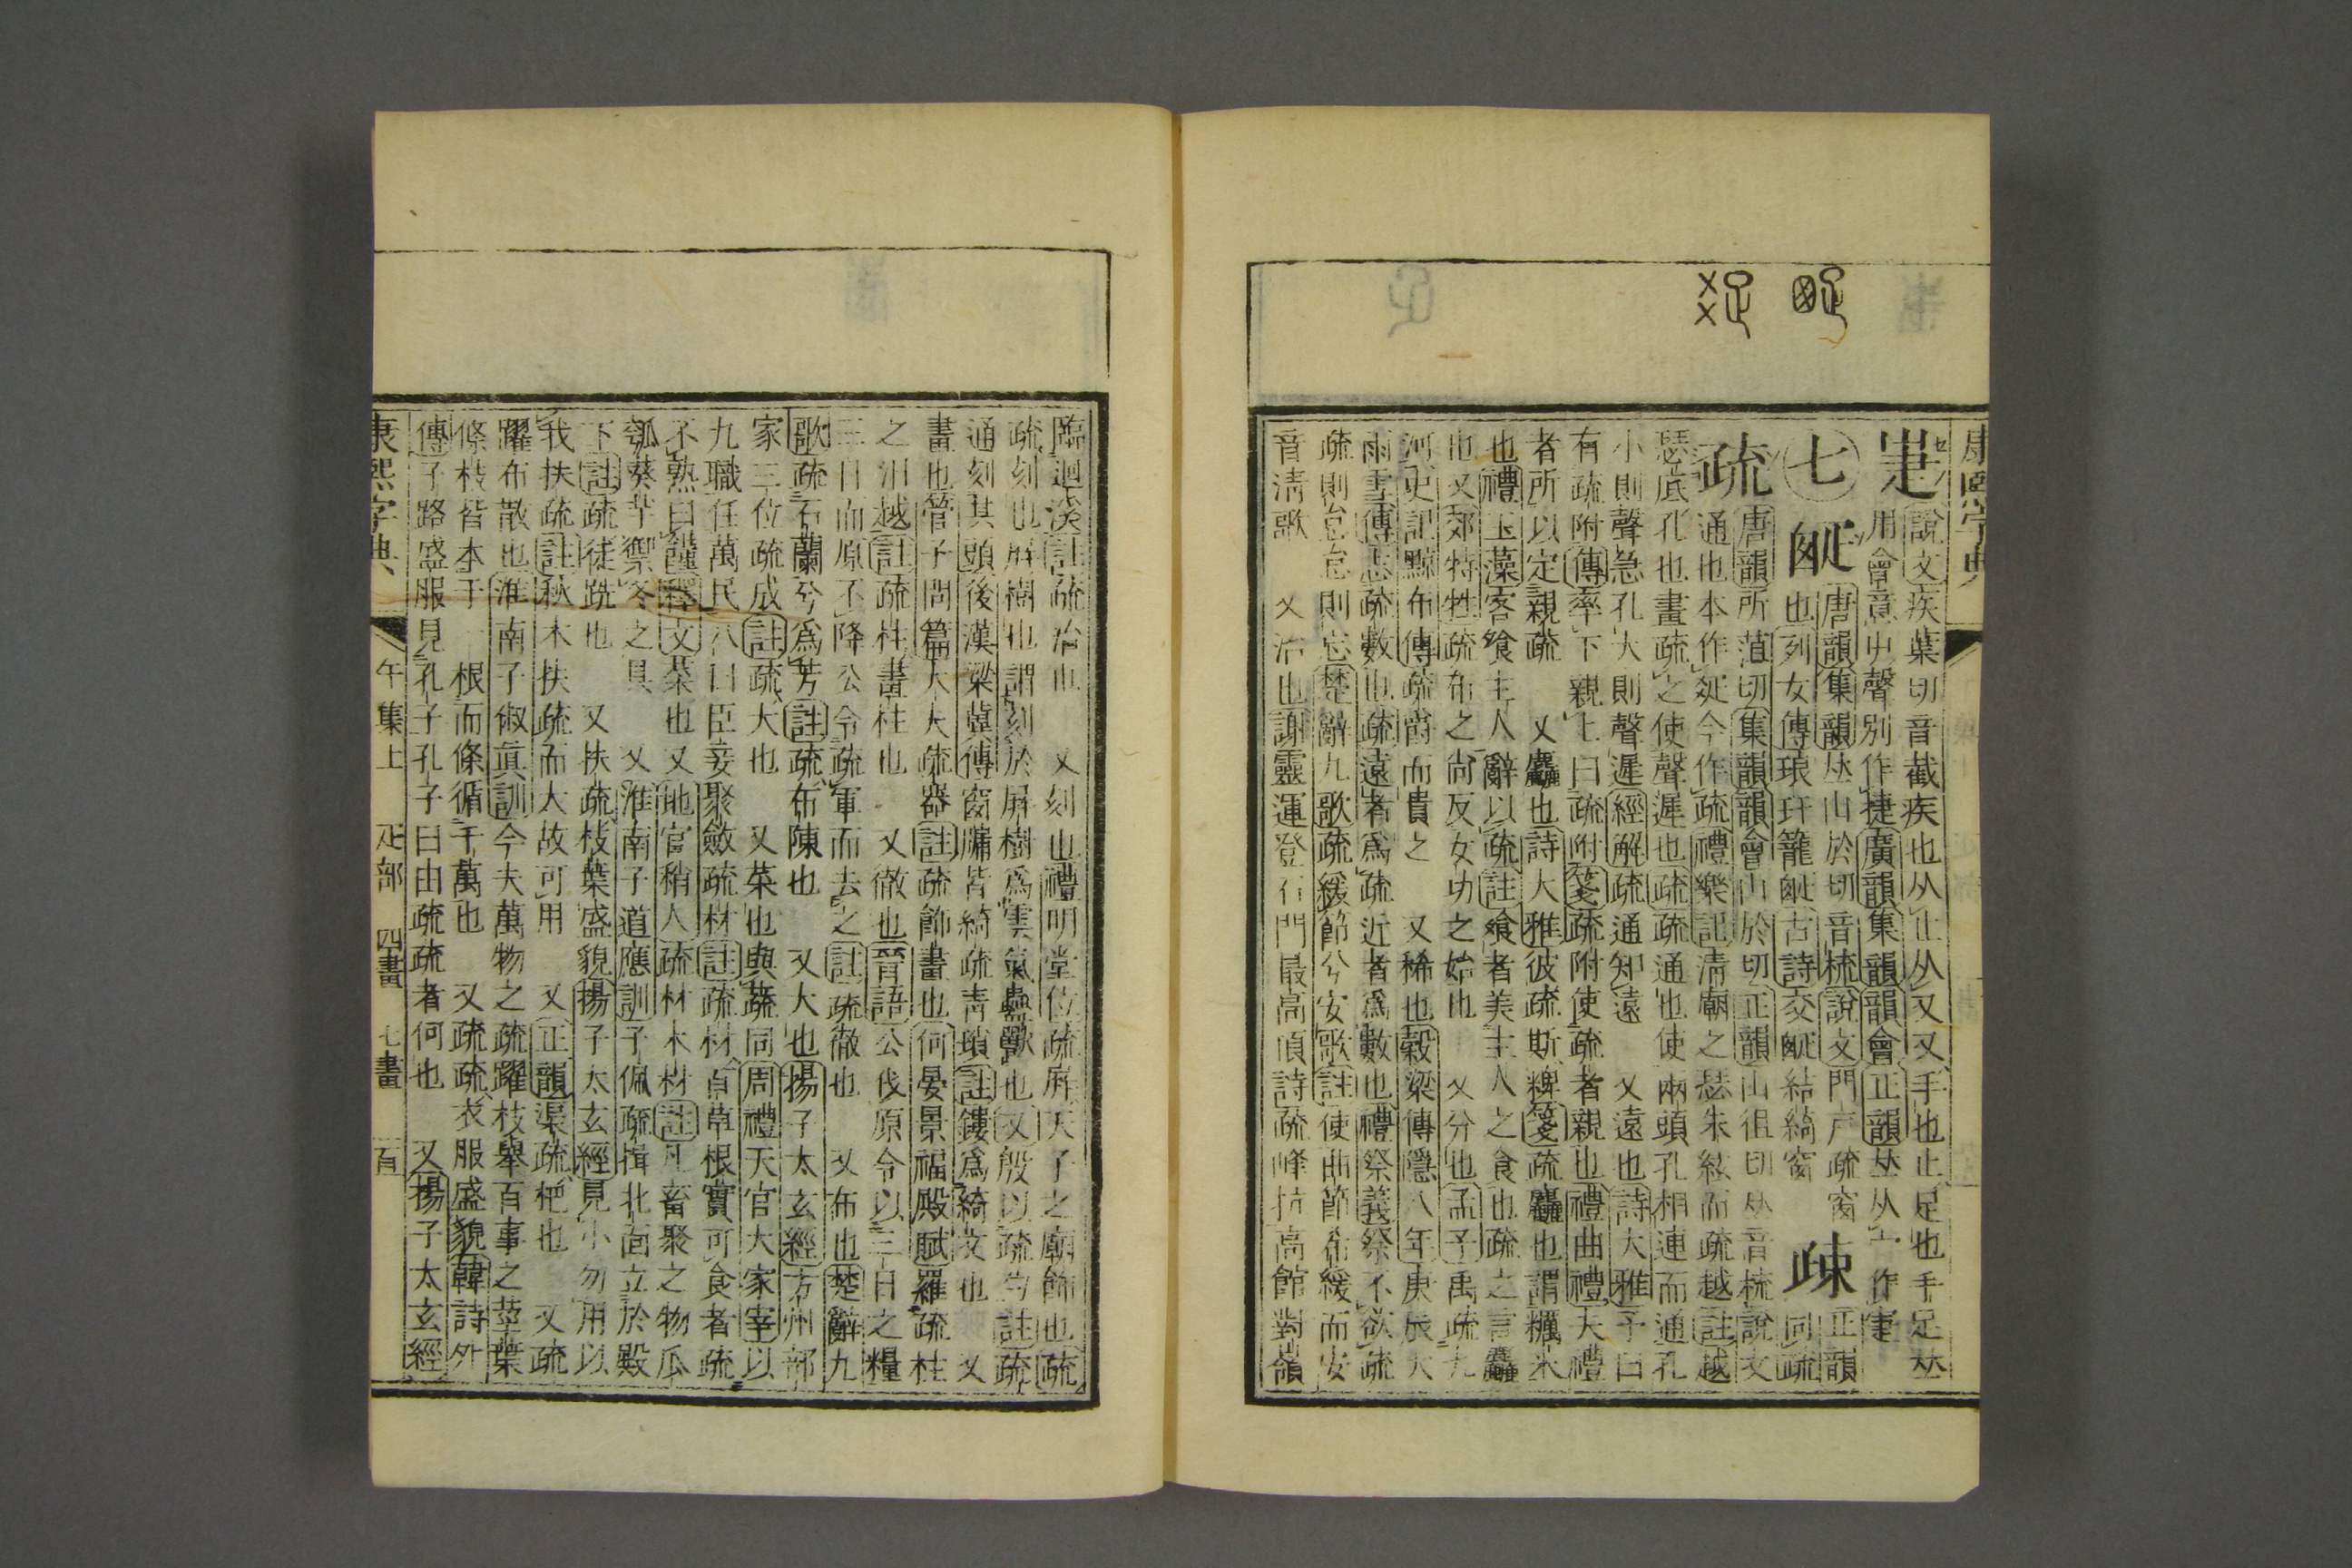 康熙字典
疌 說文疾葉切音截疾也从止从又又手也止足也手足丛
用會意屮聲別作捷廣韻集韻韻會正韻丛从 作疌
七
𤴙 唐韻集韻丛山於切音梳說文門戶疏窗
也列女傳琅玕籠𤴙古詩交𤴙結綺窗
踈 正韻
同疏
疏 唐韻所葅切集韻韻會山於切正韻山徂切丛音梳說文
通也本作𤕟今作疏禮樂記清廟之瑟朱絃而疏越註越
瑟底孔也畫疏之使聲遲也疏疏通也使兩頭孔相連而通孔
小則聲急孔大則聲遲經解疏通知遠 又遠也詩大雅予曰
有疏附傳率下親上曰疏附箋疏附使疏者親也禮曲禮夫禮
者所以定親疏 又麤也詩大雅彼疏斯粺箋疏麤也謂糲米
也禮玉藻客飧主人辭以疏註飧者美主人之食也疏之言麤
也又郊特牲疏布之尚反女功之始也 又分也孟子禹疏九
河史記黥布傳疏爵而貴之 又稀也穀梁傳隱八年庚辰大
雨雪傳志疏數也疏遠者爲疏近者爲數也禮祭義祭不欲疏
疏則怠怠則忘楚辭九歌疏緩節兮安歌註使曲節希緩而安
音清歌 又治也謝靈運登石門最高頂詩疏峰抗高館對嶺
臨迴溪註疏治也 又刻也禮明堂位疏屏天子之廟飾也疏
疏刻也屏樹也謂刻於屏樹爲雲氣蟲獸也又殷以疏勺註疏
通刻其頭後漢梁冀傳窗牖皆綺疏靑瑣註鏤爲綺文也 又
畫也管子問篇大夫疏器註疏飾畫也何晏景福殿賦羅疏柱
之汨越註疏柱畫柱也 又徹也晉語公伐原令以三日之糧
三日而原不降公令疏軍而去之註疏徹也 又布也楚辭九
歌疏石蘭兮爲芳註疏布陳也 又大也揚子太玄經方州部
家三位疏成註疏大也 又菜也與蔬同周禮天官大家宰以
九職任萬民八曰臣妾聚斂疏材註疏材百草根實可食者疏
不熟曰饉釋文菜也又地官稍人疏材木材註凡畜聚之物瓜
瓠葵芋禦冬之具 又淮南子道應訓子佩疏揖北面立於殿
下註疏徒跣也 又扶疏枝葉盛貌揚子太玄經見小勿用以
我扶疏註秋木扶疏而大故可用 又正韻渠疏杷也 又疏
躍布散也淮南子俶眞訓今夫萬物之疏躍枝舉百事之莖葉
條枝皆本于一根而條循千萬也 又疏疏衣服盛貌韓詩外
傳子路盛服見孔子孔子曰由疏疏者何也 又揚子太玄經
康熙字典 午集上 疋部 四畫 七畫 百